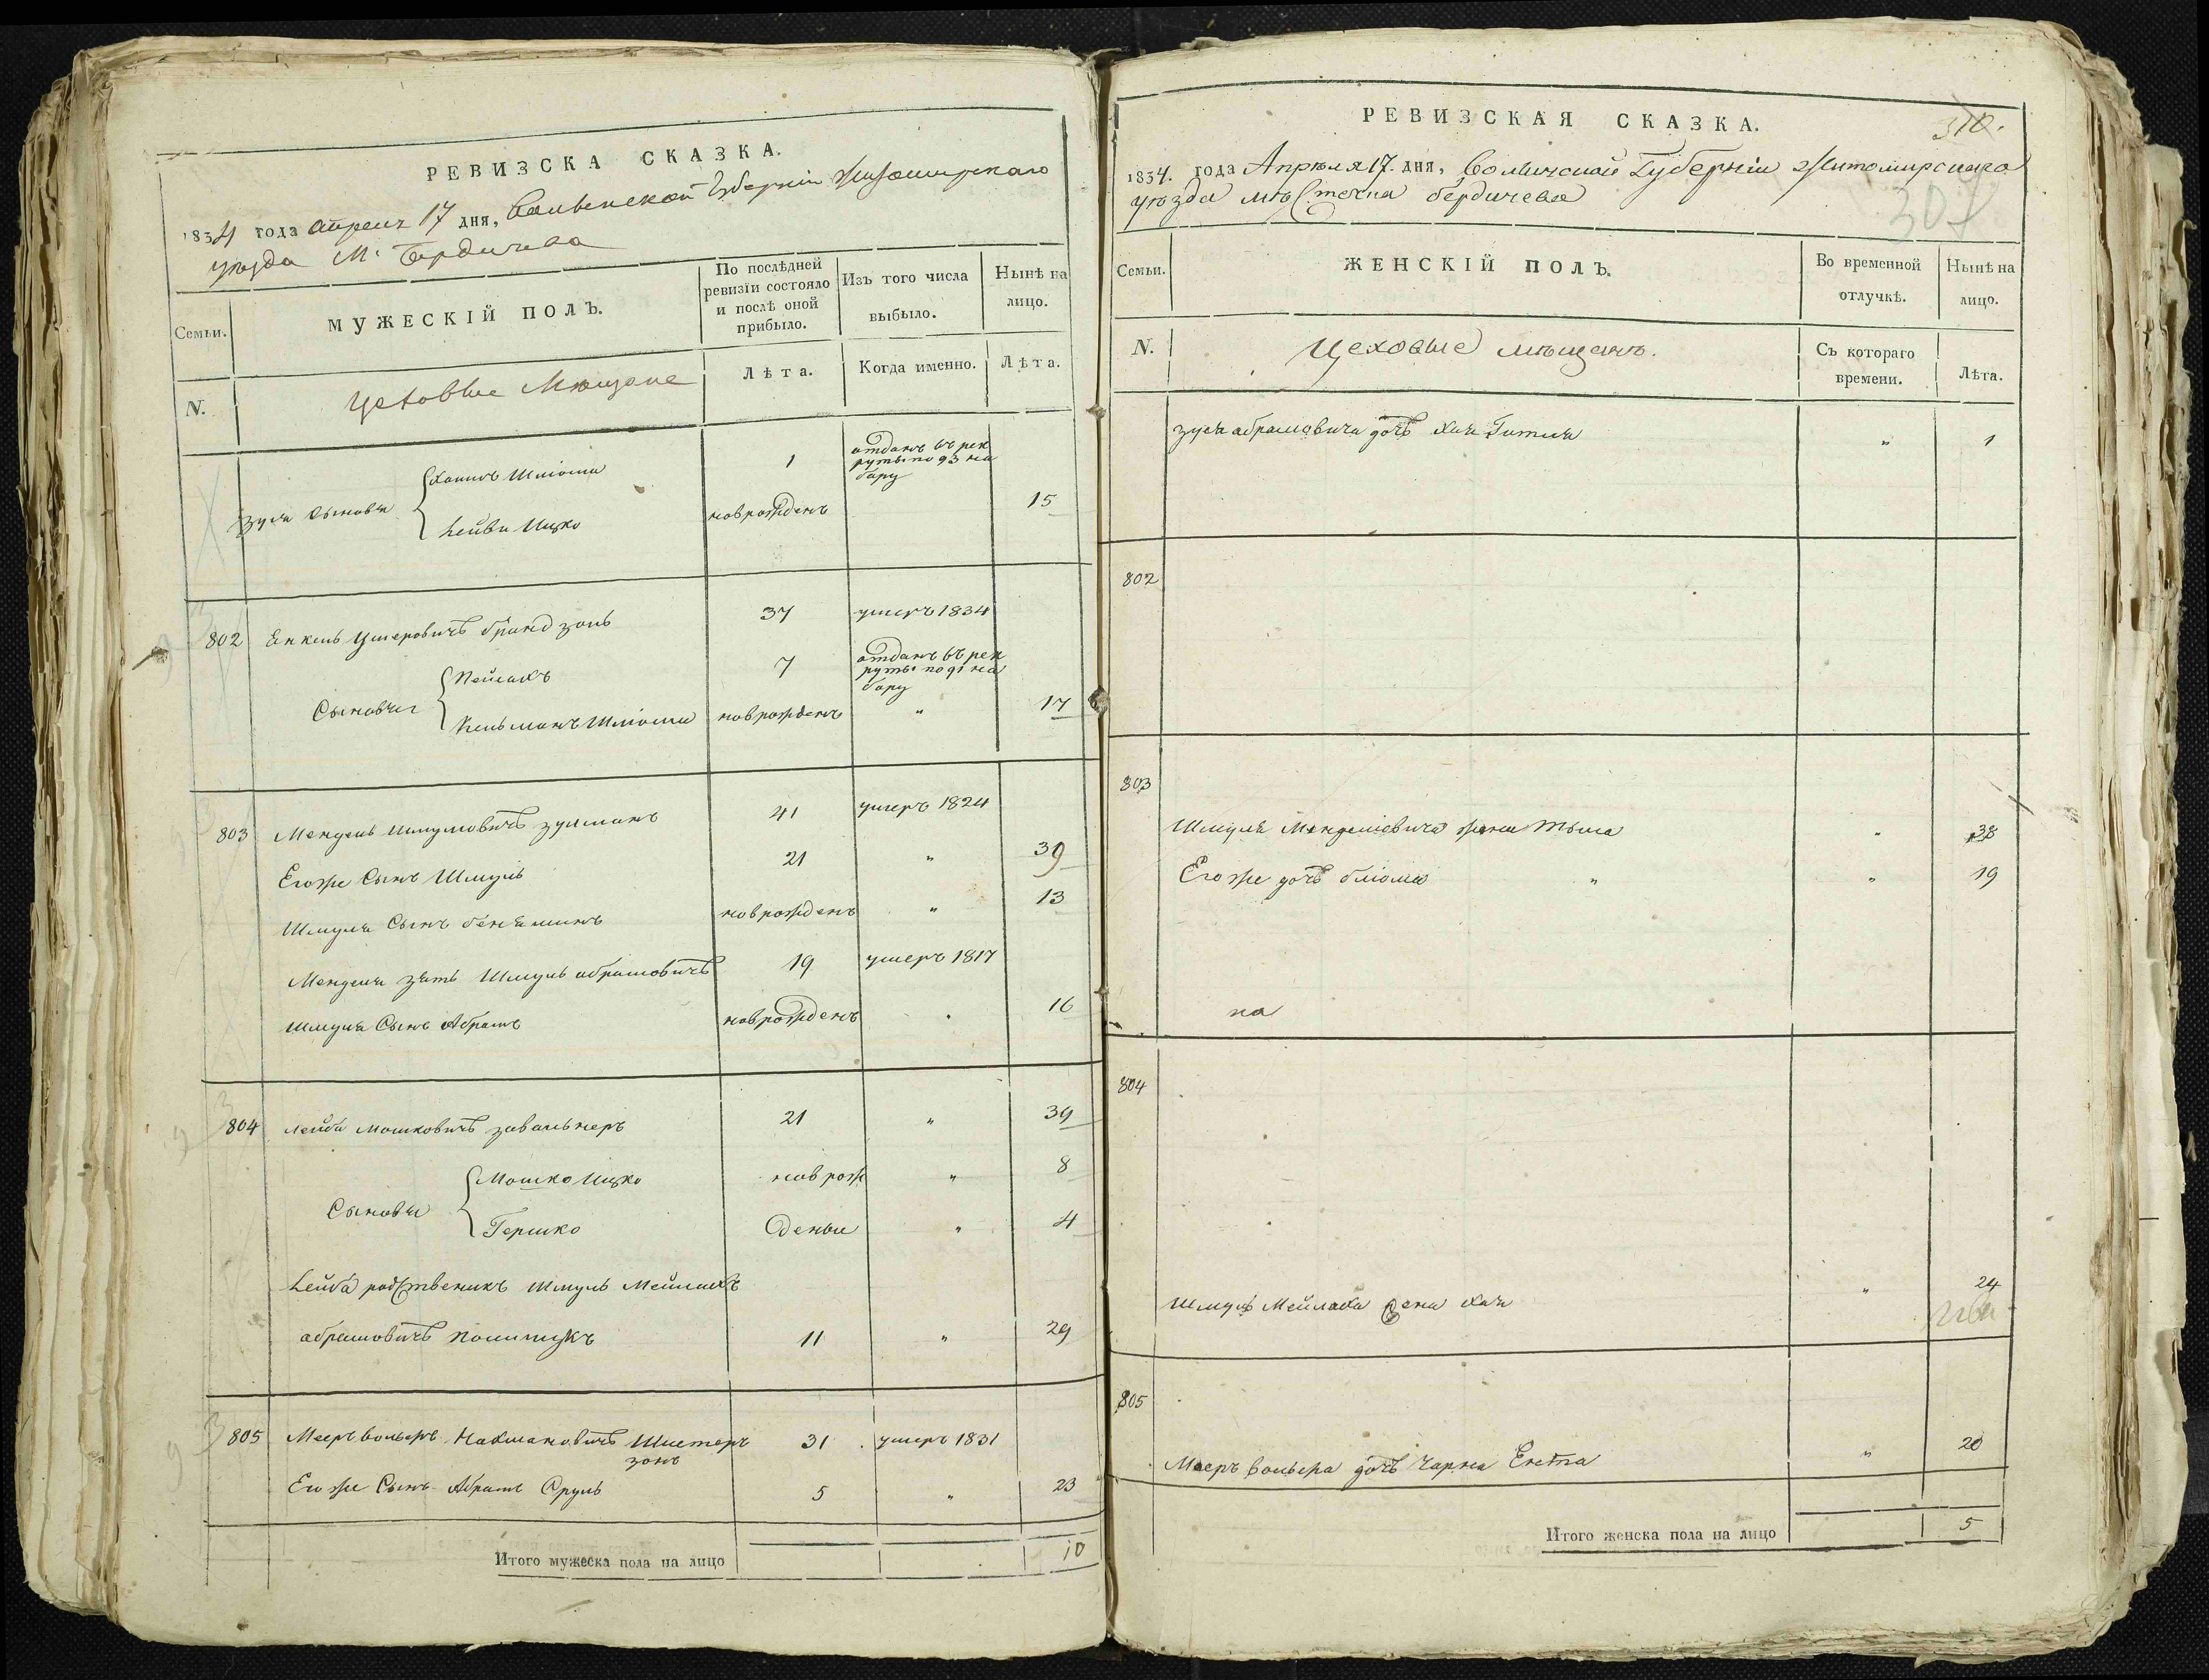 РЕВИЗСКА СКАЗКА.
1834 года апреля 17 дня, Волынской Губернiи Житомирскаго
уезда М. Бердичева
Семьи.
МУЖЕСКІЙ ПОЛЪ.
По послѣдней ревизіи состояло и послѣ оной прибыло.
Изъ того числа выбыло.
Нынѣ на лицо.
N.
Цеховые Мещане
Лѣта.
Когда именно.
Лѣта.
Зуся сыновья
Хаимъ Шліома 1 отданъ въ рек
руты по 93 на
бору
Лейба Ицко новрожденъ 15
802 Енкель Ушеровичъ брондзонъ 37 умеръ 1834
Сыновья
Пейсахъ 7 отданъ въ рек
руты по 91 на
бору
Кельманъ Шліома новрожденъ " 17
803 Мендель Шмулмовичъ зулманъ 41 умеръ 1824
Егоже Сынъ Шмуль 21 " 39
Шмуля Сынъ бенъяминъ новрожденъ " 13
Менделя зять Шмуль абрамовичъ 19 умеръ 1817
Шмуля Сынъ Абрамъ новрожденъ 16
804 Лейба Мошковичъ завальнеръ 21 " 39
Сыновья
Мошко Ицко новрож " 8
Гершко деные " 4
Лейба родственикъ Шмуль Мейлахъ
абрамовичъ полищукъ 11 " 29
805 Мееръ вольфъ Нахмановичъ Шистеръ 31 умеръ 1831
зонъ
Егоже Сынъ Абрамъ Сруль 5 " 23
Итого мужеска пола на лицо 10
РЕВИЗСКАЯ СКАЗКА.
310.
1834. года Апреля 17. дня, Волынской Губерніи Житомирскаго
уезда местечка бердичева
307
Семьи.
ЖЕНСКІЙ ПОЛЪ.
Во временной отлучкѣ.
Нынѣ на лицо.
N.
Цеховые мещанъ.
Съ котораго времени.
Лѣта.
Зуся абрамовича дочь Хая Гитля " 1
802
803
Шмуля Менделіовича жена Тыла " 38
Егоже дочь бліома " " 19
на
804
Шмуль Мейлаха жена Хая " 24
805
Мееръ вольфа дочь Чарна Ентa " 20
Итого женска пола на лицо 5